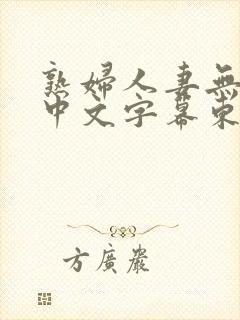 熟婦人妻無
中文字幕东
方廣嚴